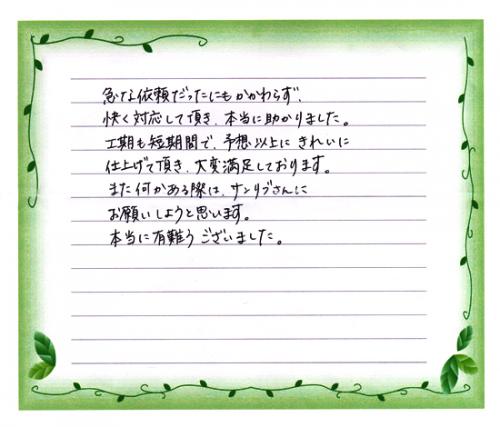 急な依頼だったにもかかわらず、
快く対応して頂き、本当に助かりました。
工期も短期間で、予想以上にきれいに
仕上げて頂き、大変満足しております。
また何かある際は、サンリブさんに
お願いしようと思います。
本当に有難うございました。